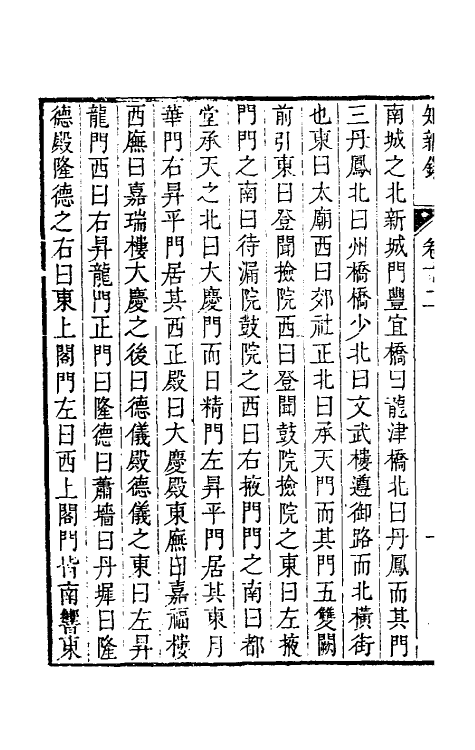 知新錄 卷十二 一
南城之北新城門豐宜橋曰龍津橋北曰丹鳳而其門
三丹鳳北曰州橋橋少北曰文武樓遵御路而北橫街
也東曰太廟西曰郊社正北曰承天門而其門五雙闕
前引東曰登聞撿院西曰登聞鼓院撿院之東曰左掖
門門之南曰待漏院鼓院之西曰右掖門門之南曰都
堂承天之北曰大慶門而日精門左昇平門居其東月
華門右昇平門居其西正殿曰大慶殿東廡曰嘉福樓
西廡曰嘉瑞樓大慶之後曰德儀殿德儀之東曰左昇
龍門西曰右昇龍門正門曰隆德曰蕭墻曰丹墀曰隆
德殿隆德之右曰東上閣門左曰西上閣門皆南響東